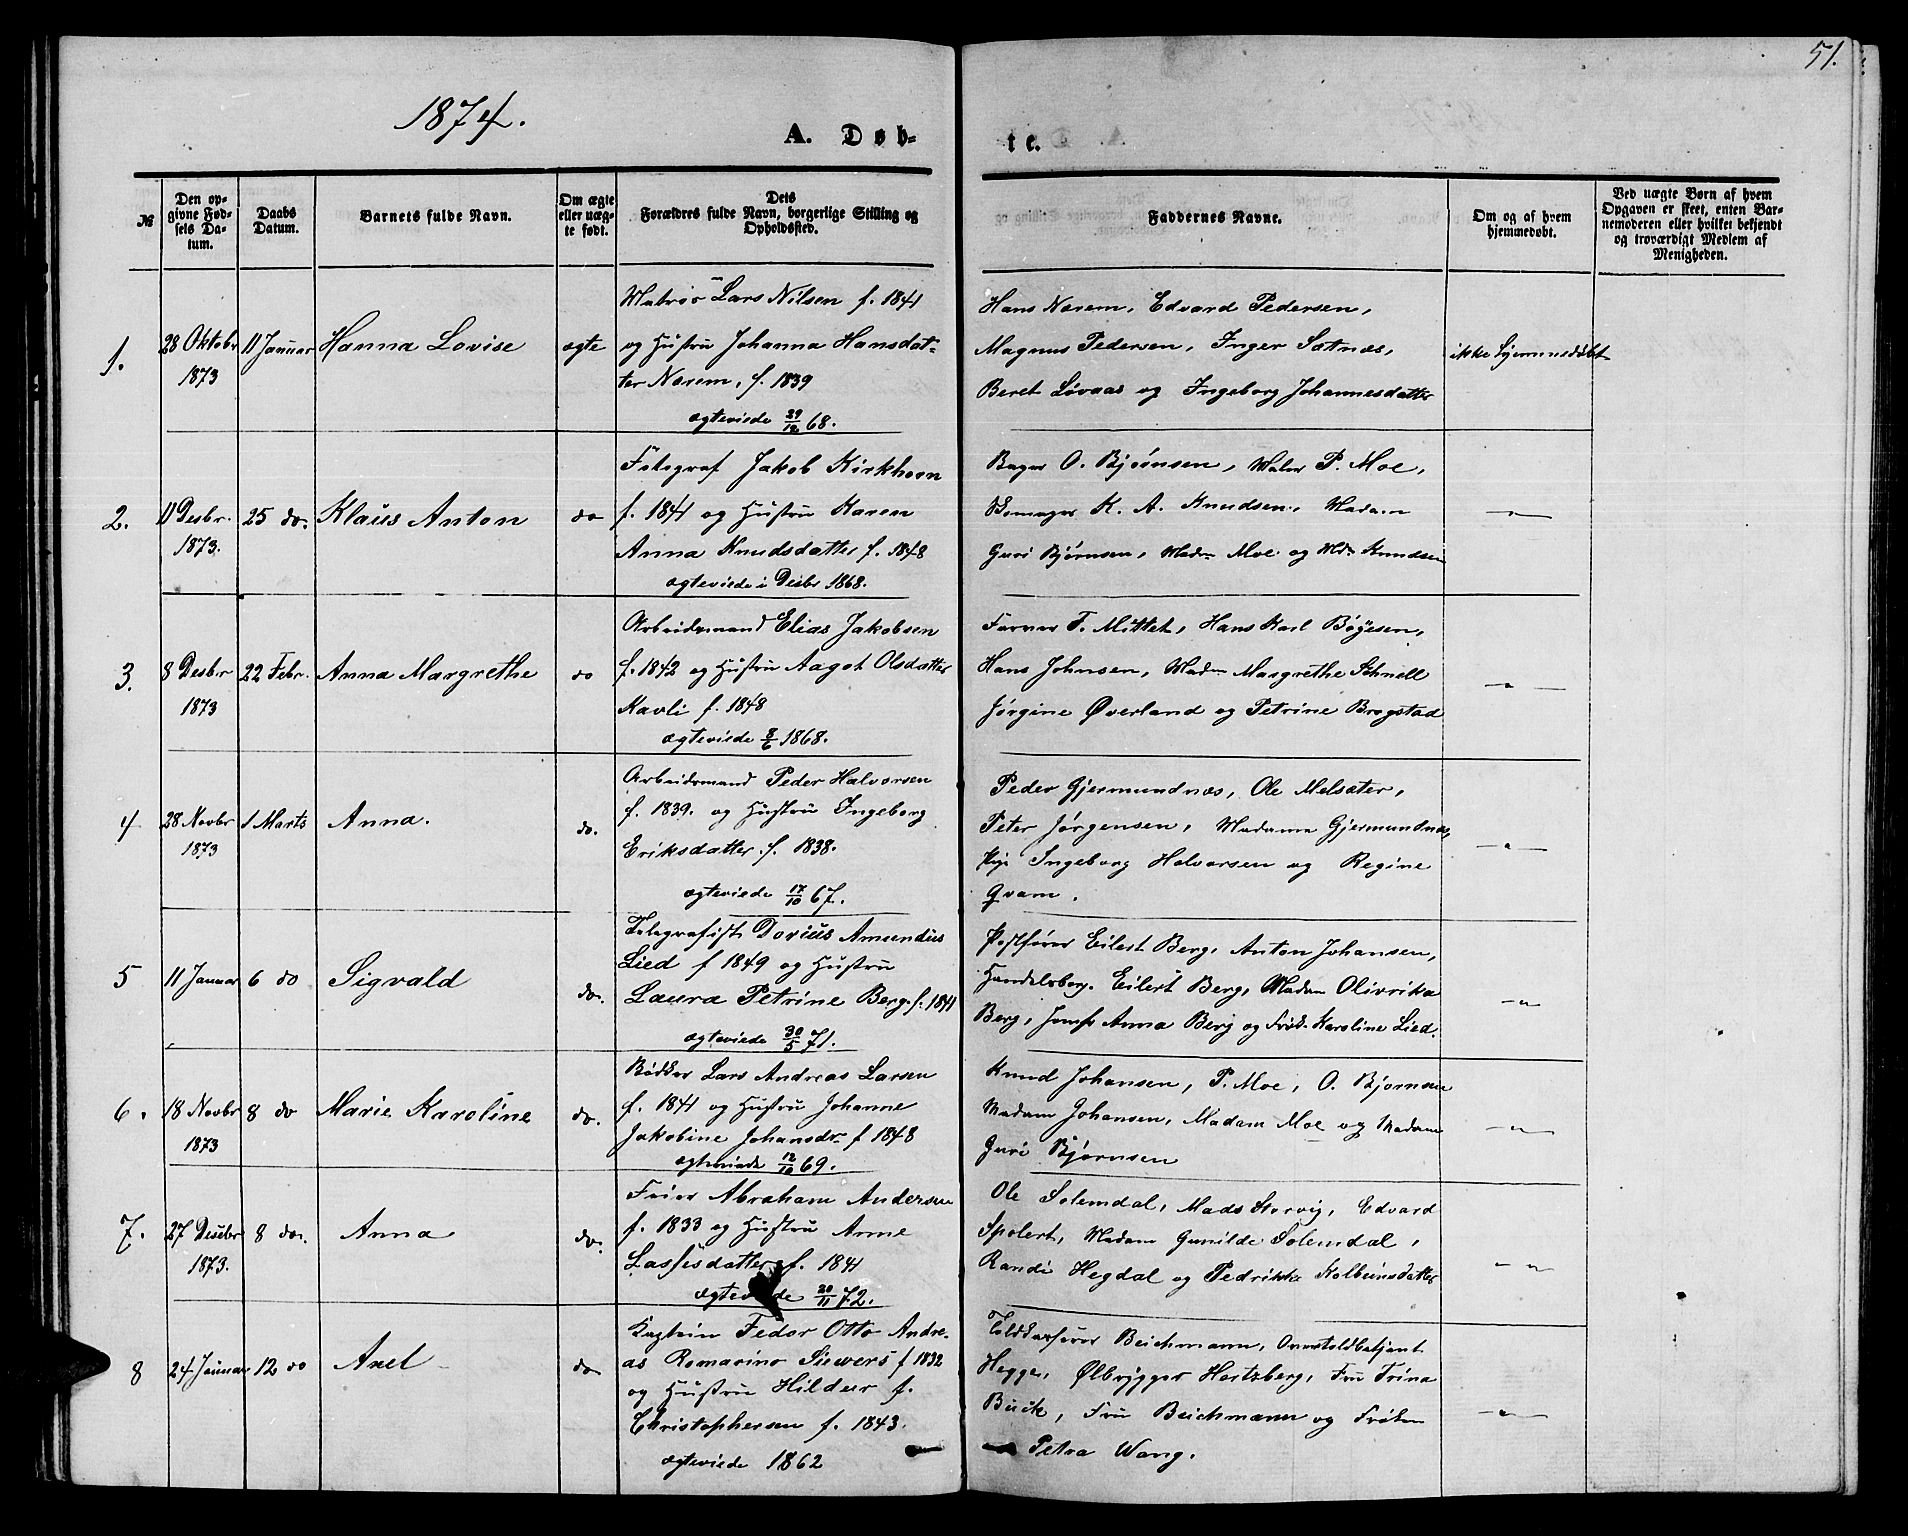 51.
1874.
A. Døb-
te.
№
Den op-
givne Fød-
sels Da-
tum.
Daabs
Datum.
Barnets fulde Navn.
Om ægte
eller uæg-
te født.
Dets
Forældres fulde Navn, borgerlige Stilling og
Opholdssted.
Faddernes Navne.
Om og af hvem
hjemmedøbt.
Ved uægte Børn af hvem
Opgaven er skeet, enten Bar-
nemoderen eller hvilket bekjendt
og troværdigt Medlem af
Menigheden.
1.
28 Oktobr
1873
11 Januar
Hanna Lovise
ægte
Matros Lars Nilsen f. 1841
og Hustru Johanna Hansdat-
ter Nerem, f. 1839
ægteviede 29/12 68.
Hans Nerem, Edvard Pedersen,
Magnus Pedersen, Inger Sætnæs,
Beret Løvaas og Ingeborg Johannesdatter
ikke hjemmedøbt
2.
11 Desbr.
1873.
25 do.
Klaus Anton
do
Fotograf Jakob Kirkhorn
f. 1841 og Hustru Karen
Anna Knudsdatter f. 1848
ægteviede i Desbr 1868.
Bager O. Bjørnsen, Maler P. Moe,
K. A. Knudsen, Madam
Guri Bjørnsen, Madm Moe og Mdm Knudsen
—"—
3.
8 Desbr
1873
22 Febr.
Anna Margrethe
do
Arbeidsmand Elias Jakobsen
f. 1842 og Hustru Aagot Olsdatter
Kavli f. 1848
ægteviede 8/6 1868.
Farver T. Mittet, Hans Karl Bøyesen,
Hans Johnsen, Madm Margrethe Schnell
Jørgine Øverland og Petrine Brogstad
—"—
4
28 Novbr
1873
1 Marts
Anna.
do.
Arbeidsmand Peder Halvorsen
f. 1839. og Hustru Ingeborg
Eriksdatter f. 1838.
ægteviede 17/10 67.
Peder Gjermundnæs, Ole Melsæter,
Peter Jørgensen, Madame Gjermundnæs,
Pige Ingeborg Halvorsen og Regine
Qvam.
—"—
5
11 Januar
6 do
Sigvald
do.
Telegrafist Dorius Amundus
Lied f 1849 og Hustru
Laura Petrine Berg f. 1841
ægteviede 30/5 71.
Postfører Eilert Berg, Anton Johansen,
Handelsbog. Eilert Berg, Madam Olivrika
Berg, Jomfr Anna Berg og Frøk. Karoline Lied.
—"—
6.
18 Novbr
1873
8 do
Marie Karoline
do.
Bødker Lars Andreas Larsen
f. 1841 og Hustru Johanne
Jakobine Johansdr. f 1848
ægteviede 12/10 69.
Knud Johansen, P. Moe, O. Bjørnsen
Madam Johansen, Madam Moe og Madam
Guri Bjørnsen
—"—
7.
27 Desebr
1873.
8 do.
Anna
do.
Abraham Andersen
f. 1833 og Hustru Anne
Lassesdatter f. 1841
ægteviede 20/11 72.
Ole Solemdal, Mads Storvig, Edvard
Spolert, Madam Gunilde Solemdal,
Randi Hegdal og Pedrikke Kolbeinsdatter
—"—
8
24 Januar
12 do
Axel
do
Kaptein Fedor Otto Andre-
as Romarino Siewers f 1832
og Hustru Hildur f.
Christophersen f. 1843.
ægteviede 1862
Toldkasserer Beichmann, Overtoldbetjent
Hegge, Ølbrygger Hertzberg, Fru Trina
Buck, Fru Beichmann og Frøken
Petra Wang.
—"—